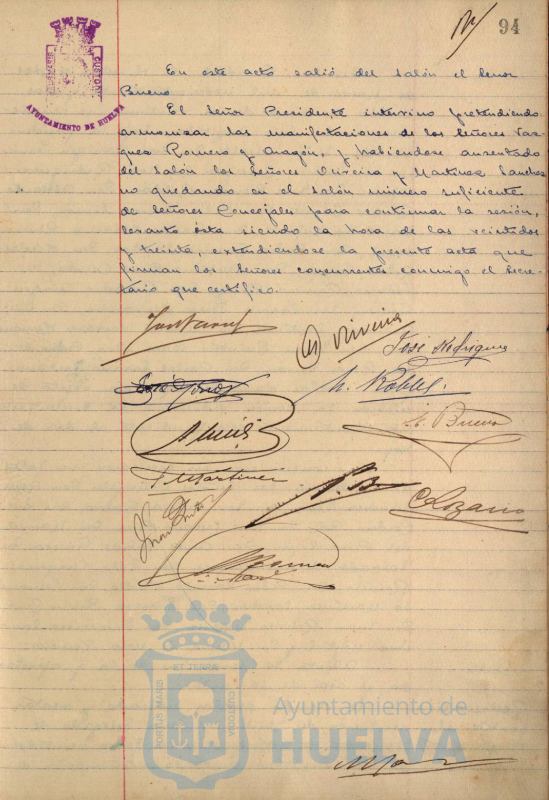 94
AYUNTAMIENTO DE HUELVA
En este acto salió del salón el Señor
Bueno
El Señor Presidente intervino pretendiendo
armonizar las manifestaciones de los Señores Vaz
quez Romero y Aragón, y habiendose ausentado
del salón los Señores Oliveira y Martinez Sanchez
no quedando en el salón número suficiente
de Señores Concejales para continuar la sesión,
levanto esta siendo la hora de las veintidos
y treinta, extendiendose la presente acta que
firman los Señores concurrentes conmigo el Secre-
tario que certifico.
José Rodriguez
A. Bueno
C Lozano
PORTUS MARIS ET TERRAE CUSTODIA
Ayuntamiento de
HUELVA